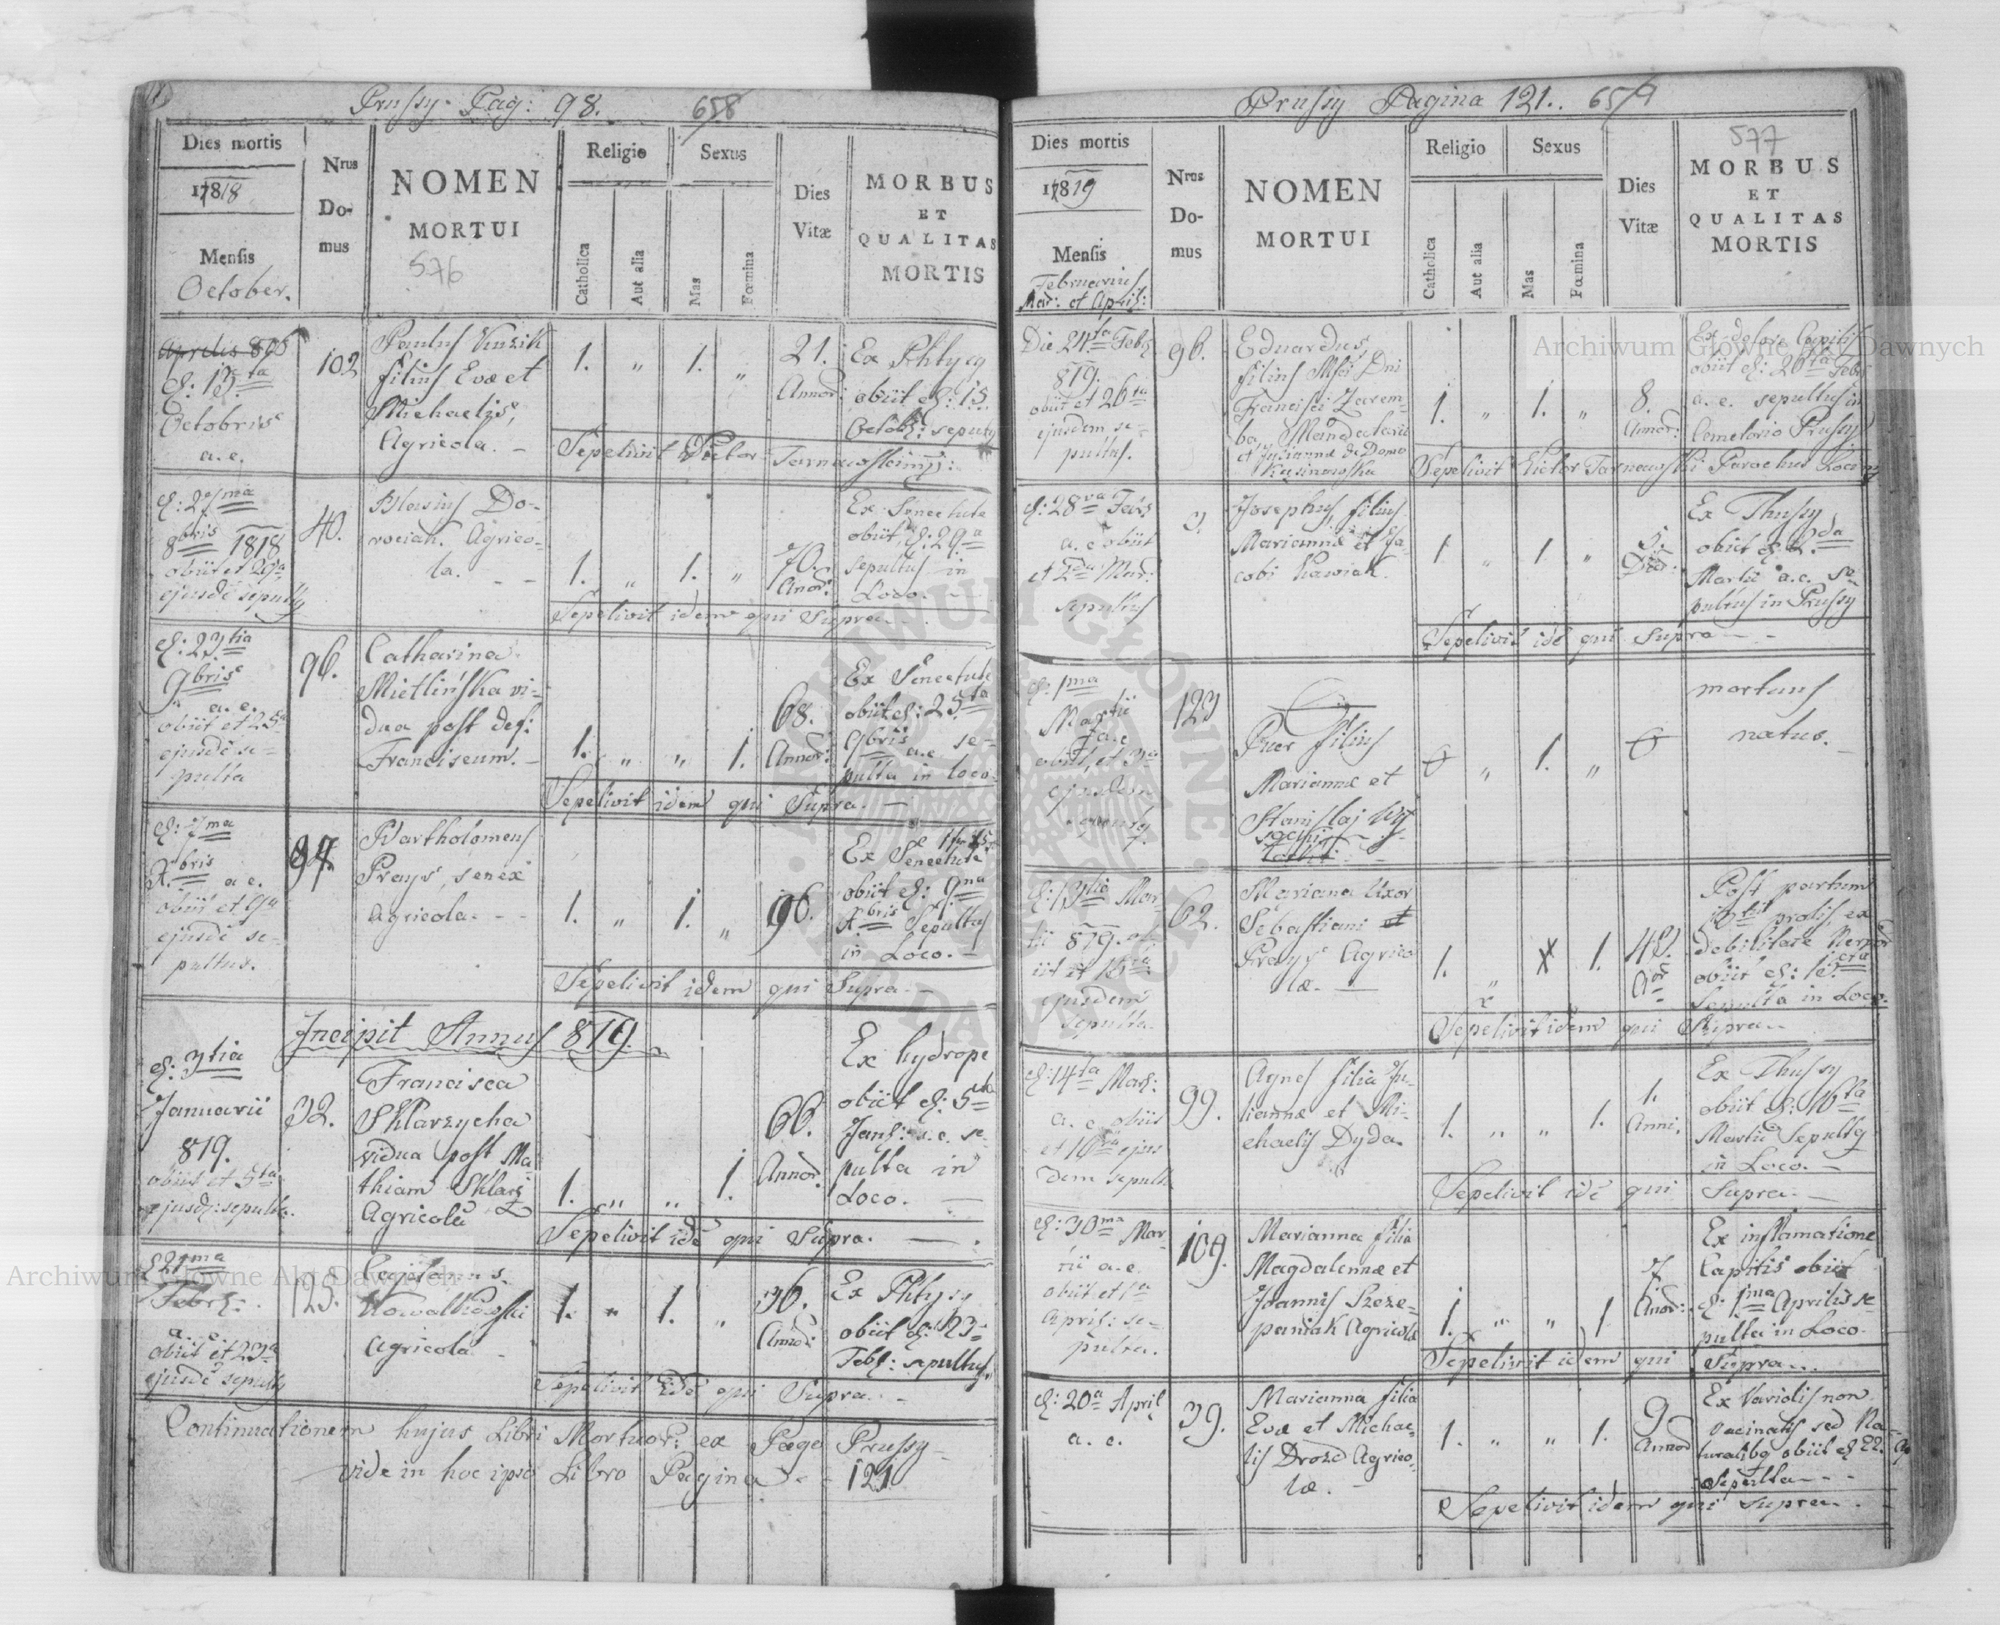 Prussy Pag: 98.
658
Dies mortis
Nrus
Do-
mus
NOMEN
MORTUI
576
Religio
Sexus
Dies
Vitæ
MORBUS
ET
QUALITAS
MORTIS
1818
Mensis
October.
Catholica
Aut alia
Mas
Fœmina
Aprilis 806
d: 13ta
Octobris
a.e.
102
Paulus Kuzik
filius Evæ et
Michaelis
Agricola.
1. " 1. "
21.
Annor:
Ex Phtysi
obiit d: 15
Octobr: sepultus
Sepelivit Victor Tarnawski mpp:
8bris 1818
obiit et 29a
ejusdē sepultus
40.
Blasius Do-
rociak. Agrico-
la.
1. " 1. "
70.
Anor:
Ex Senectute
obiit d: 29a
sepultus in
Loco.
Sepelivit idem qui Supra.
d: 23tia
9bris
a.e.
obiit et 25a
ejusdē se-
pulta
96.
Catharina
Mietlińska vi-
dua post def:
Franciscum.
1. " " 1.
68.
Annor:
Ex Senectute
obiit d: 25ta
9bris a.e. se-
pulta in loco.
Sepelivit idem qui Supra.
d: 7ma
Xbris a.e.
obiit et 9a
ejusdē se-
pultus.
Bartholomeus
Prays, senex
Agricola.
1. " 1. "
96.
Ex Senectute
obiit d: 9na
Xbris Sepultus
in Loco.
Sepelivit idem qui Supra.
Incipit Annus 819.
d: 3tia
Januarii
819.
obiit et 5ta
ejusd: sepulta.
32.
Francisca
Sklarzycha
vidua post Ma-
thiam Sklarz
Agricola
1. " " 1.
66.
Annor.
Ex hydrope
obiit d: 5ta
Jan: a.e. se-
pulta in
Loco.
Sepelivit idē qui Supra.
21ma
Febr:
a.e.
obiit et 23a
ejusdē sepultus
125.
Cajetanus
Kowalkowski
Agricola
1. " 1. "
36.
Annor:
Ex Phtysi
obiit d: 23
Febr: sepultus.
Sepelivit idē qui Supra.
Continuationem hujus Libri Mortuor: ex Pago Prussy
vide in hoc ipso Libro Pagina 121
Prussy Pagina 121.. 659
Dies mortis
Nrus
Do-
mus
NOMEN
MORTUI
Religio
Sexus
Dies
Vitæ
577
MORBUS
ET
QUALITAS
MORTIS
1819
Mensis
Februarii
Mar: et April:
Catholica
Aut alia
Mas
Fœmina
Die 24ta Febr
819.
obiit et 26ta
ejusdem se-
pultus.
96.
Eduardus
filius Dni
Francisci Zarem-
ba, Mandatarii
et Julianna de Domo
Kasinowska
1. " 1. "
8.
Annor:
Ex dolore Capitis
obiit d: 26ta Febr
a.e. sepultus in
Cemetorio Prussy
Sepelivit Victor Tarnawski Parochus Loci
d: 28va Febr
a.e obiit
et 2da Mar:
sepultus
3.
Josephus, filius
Mariannæ et Ja-
cobi Kawiak.
1 " 1 "
5.
Dier:
Ex Thussy
obiit d: 2da
Martii a.e. se-
pultus in Prussy
Sepelivit idē qui supra
d: 1ma
Martii
a.e
obiit, et 3a
123
Puer filius
Mariannæ et
Stanislai
" 1. "
mortuus
natus.
d: 13tia Mar-
tii 819. ob-
iit et 15ta
ejusdem
sepulta
62.
Mariana Uxor
Sebastiani et
Prays Agrico
læ.
1. " 1.
42.
Post partum
prolis, ex
debilitate Nervor
obiit d: 15ta
Sepulta in Loco.
Sepelivit idem qui Supra
d: 14ta Mar:
a.e obiit
et 16ta ejus
dem sepulta
99.
Agnes filia Ju-
liannæ et Mi-
chaelis Dyda
1. " " 1.
1.
Anni.
Ex Thussy
obiit d: 16ta
Martii Sepulta
in Loco.
Sepelivit idē qui Supra.
d: 30ma Mar-
tii a.e.
obiit et 1a
April: se-
pulta.
109.
Marianna filia
Magdalenæ et
Joannis Szcze-
paniak Agricola
1. " " 1.
7
Anor:
Ex inflamatione
Capitis obiit
d: 1ma Aprilis se-
pulta in Loco
Sepelivit idem qui Supra.
d: 20a April
a.e.
39.
Marianna filia
Evæ et Michae-
lis Drozd Agrico-
læ.
1. " " 1.
9
Annor
Ex Variolis non
vacinatis sed Na-
turalibq obiit d 22. Ap
Sepulta
Sepelivit idem qui supra.
Archiwum Główne Akt Dawnych
Archiwum Główne Akt Dawnych
ARCHIWUM GŁÓWNE AKT DAWNYCH